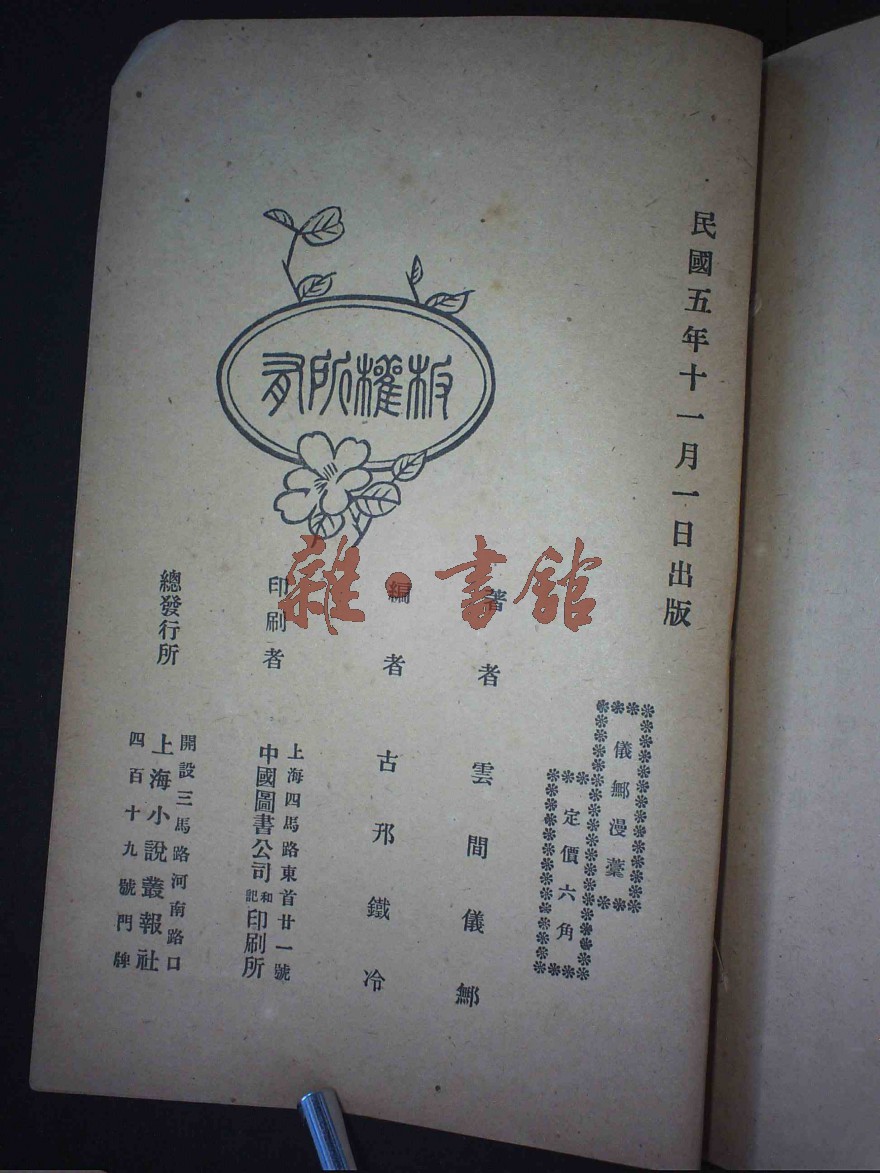 民國五年十一月一日出版
儀鄦漫藁
定價六角
著者 雲間儀鄦
編者 古邗鐵冷
印刷者
上海四馬路東首廿一號
中國圖書公司和記印刷所
總發行所
開設三馬路河南路口
上海小說叢報社
四百十九號門牌
版權所有
雜·書館